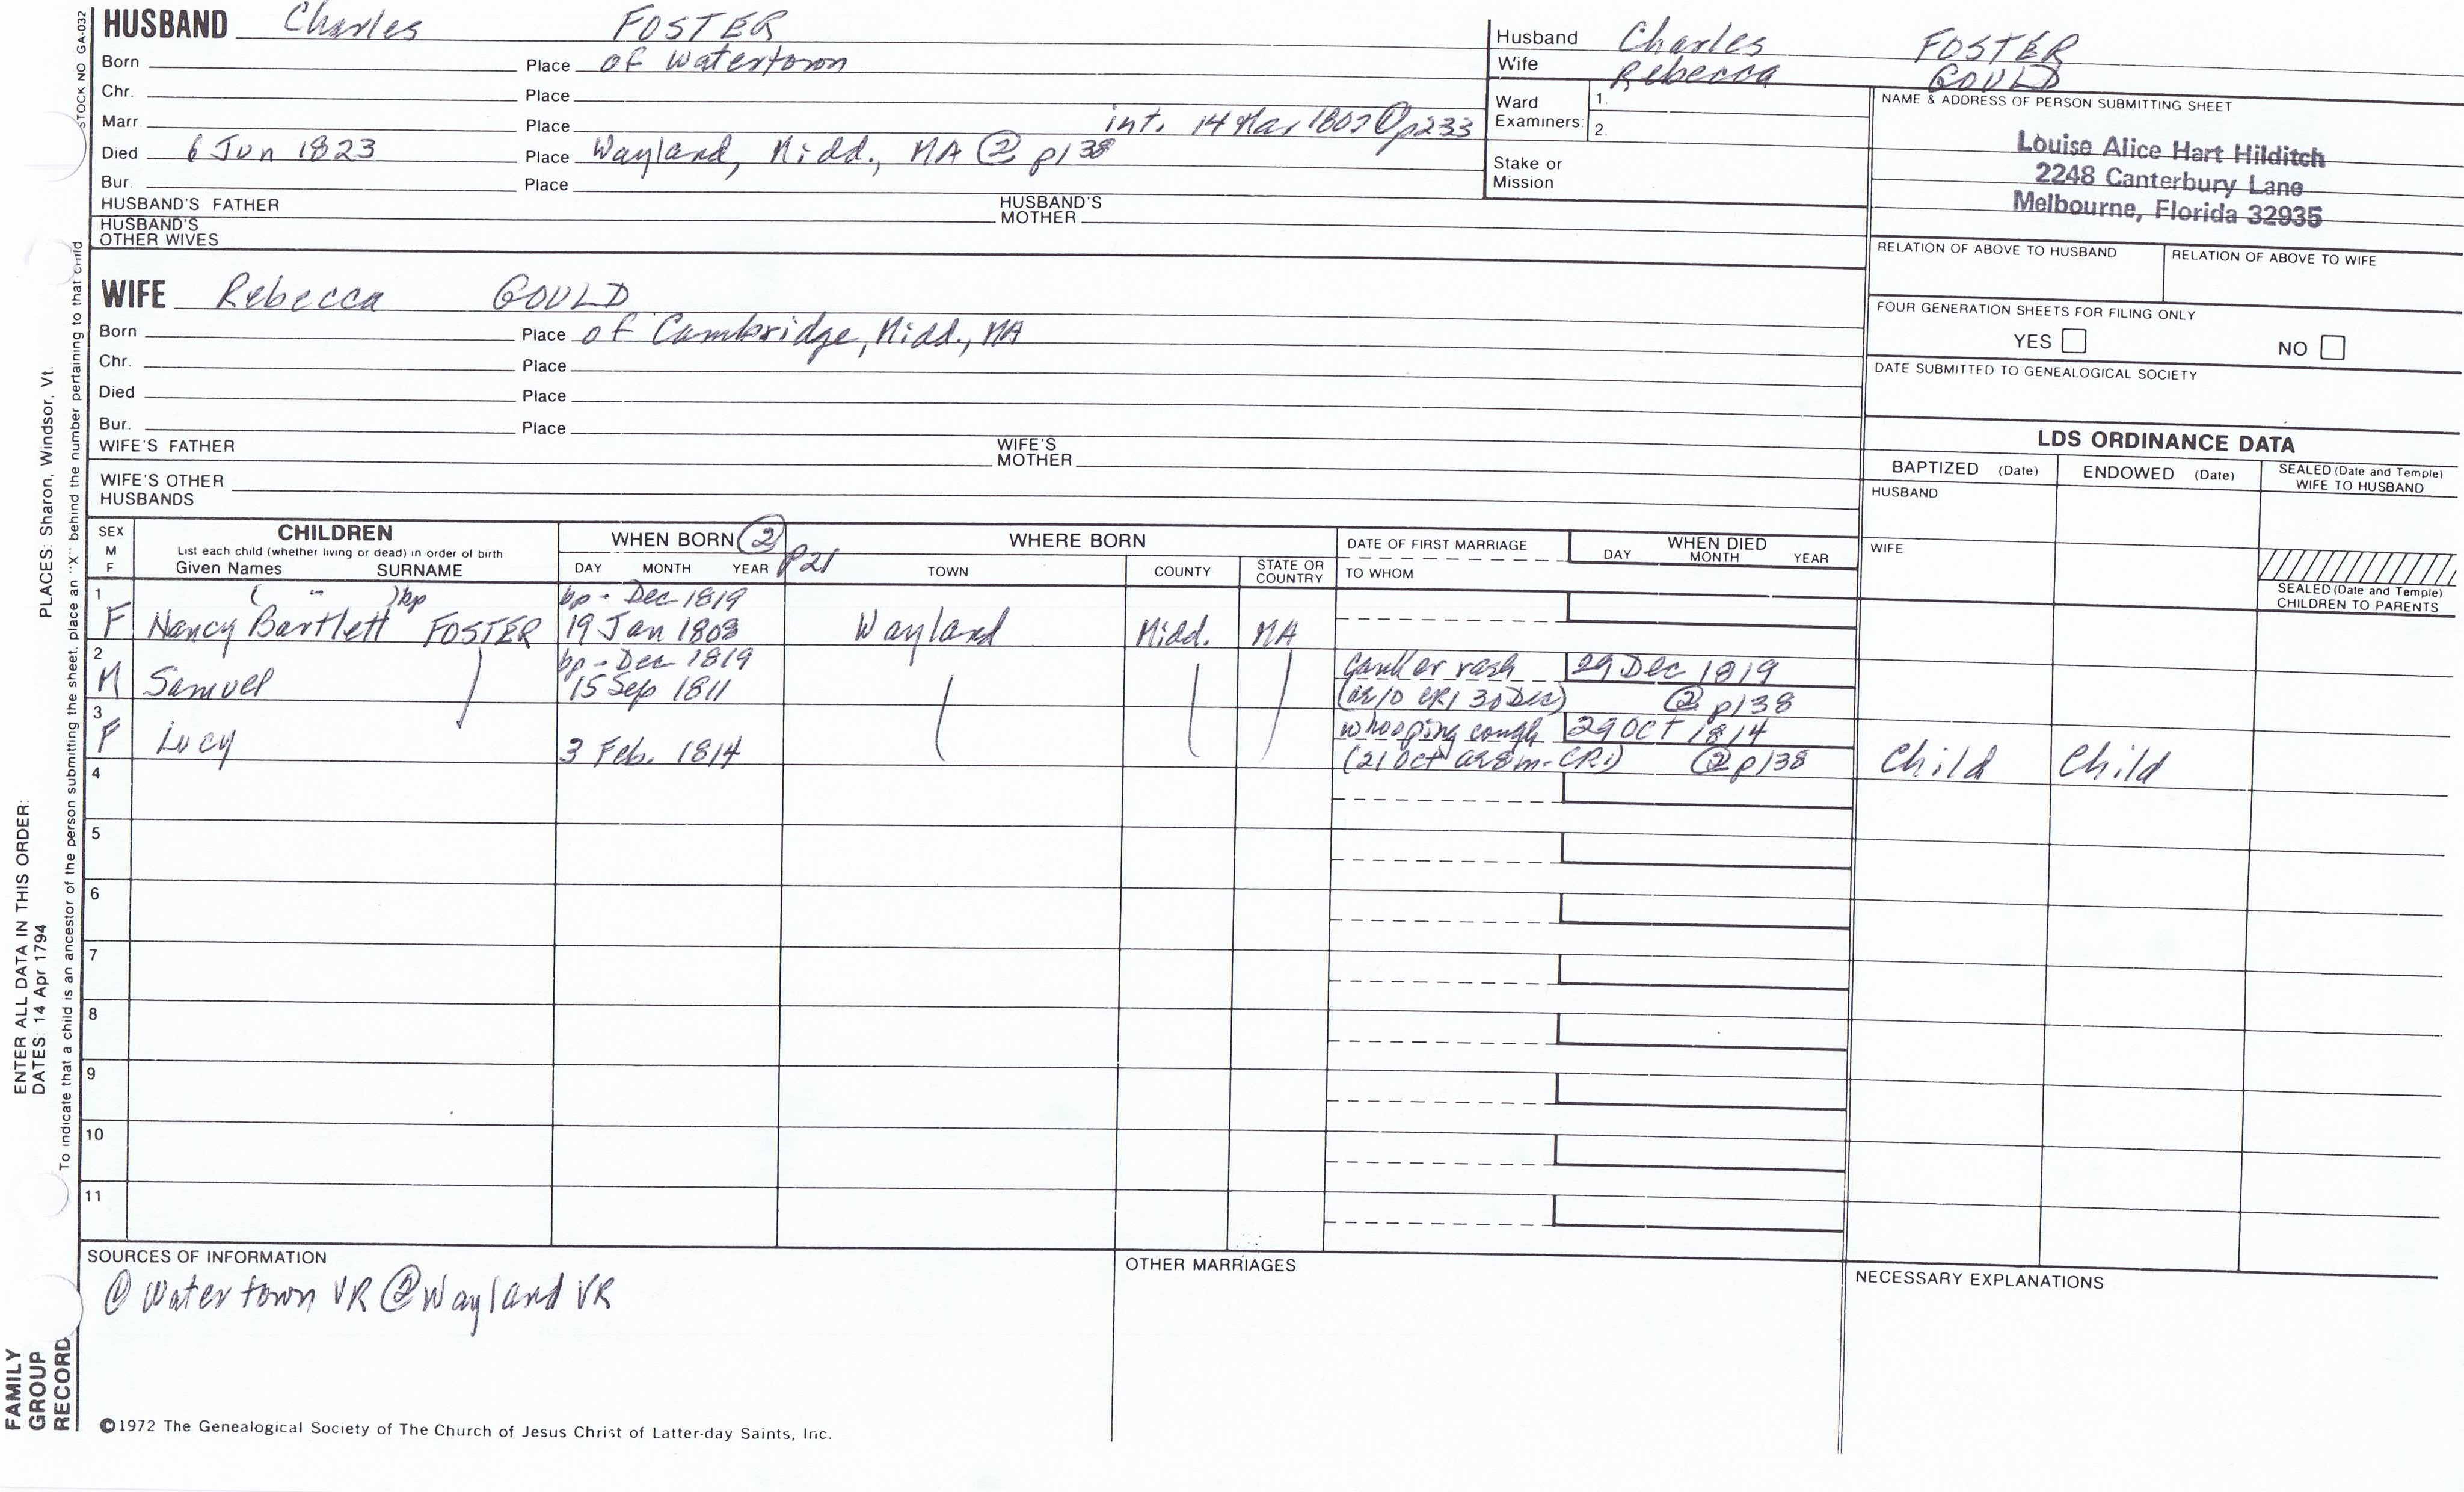 HUSBAND Charles FOSTER
Born Place of Watertown
Chr. Place
Marr. Place int. 14 Mar 1807 ① p233
Died 6 Jun 1823 Place Wayland, Midd., MA ② p138
Bur. Place
HUSBAND'S FATHER HUSBAND'S MOTHER
HUSBAND'S OTHER WIVES
WIFE Rebecca GOULD
Born Place of Cambridge, Midd., MA
Chr. Place
Died Place
Bur. Place
WIFE'S FATHER WIFE'S MOTHER
WIFE'S OTHER HUSBANDS
Husband Charles FOSTER
Wife Rebecca GOULD
Ward Examiners: 1.
2.
Stake or Mission
NAME & ADDRESS OF PERSON SUBMITTING SHEET
Louise Alice Hart Hilditch
2248 Canterbury Lane
Melbourne, Florida 32935
RELATION OF ABOVE TO HUSBAND RELATION OF ABOVE TO WIFE
FOUR GENERATION SHEETS FOR FILING ONLY
YES NO
DATE SUBMITTED TO GENEALOGICAL SOCIETY
LDS ORDINANCE DATA
BAPTIZED (Date) ENDOWED (Date) SEALED (Date and Temple) WIFE TO HUSBAND
HUSBAND
WIFE
SEALED (Date and Temple) CHILDREN TO PARENTS
SEX M F
CHILDREN
List each child (whether living or dead) in order of birth
Given Names SURNAME
WHEN BORN ② p21
DAY MONTH YEAR
WHERE BORN
TOWN COUNTY STATE OR COUNTRY
DATE OF FIRST MARRIAGE
TO WHOM
WHEN DIED
DAY MONTH YEAR
1 ( " ) bp bp - Dec 1819
F Nancy Bartlett FOSTER 19 Jan 1808 Wayland Midd. MA
2 bp - Dec 1819 Canker rash 29 Dec 1819
M Samuel 15 Sep 1811 (ae 10 CR1 30 Dec) ② p138
3 whooping cough 29 Oct 1814
F Lucy 3 Feb. 1814 (21 Oct ae 8m - CR1) ② p138 Child Child
4
5
6
7
8
9
10
11
SOURCES OF INFORMATION
① Watertown VR ② Wayland VR
OTHER MARRIAGES
NECESSARY EXPLANATIONS
©1972 The Genealogical Society of The Church of Jesus Christ of Latter-day Saints, Inc.
STOCK NO GA-032
To indicate that a child is an ancestor of the person submitting the sheet, place an "X" behind the number pertaining to that child
ENTER ALL DATA IN THIS ORDER:
DATES: 14 Apr 1794 PLACES: Sharon, Windsor, Vt.
FAMILY
GROUP
RECORD